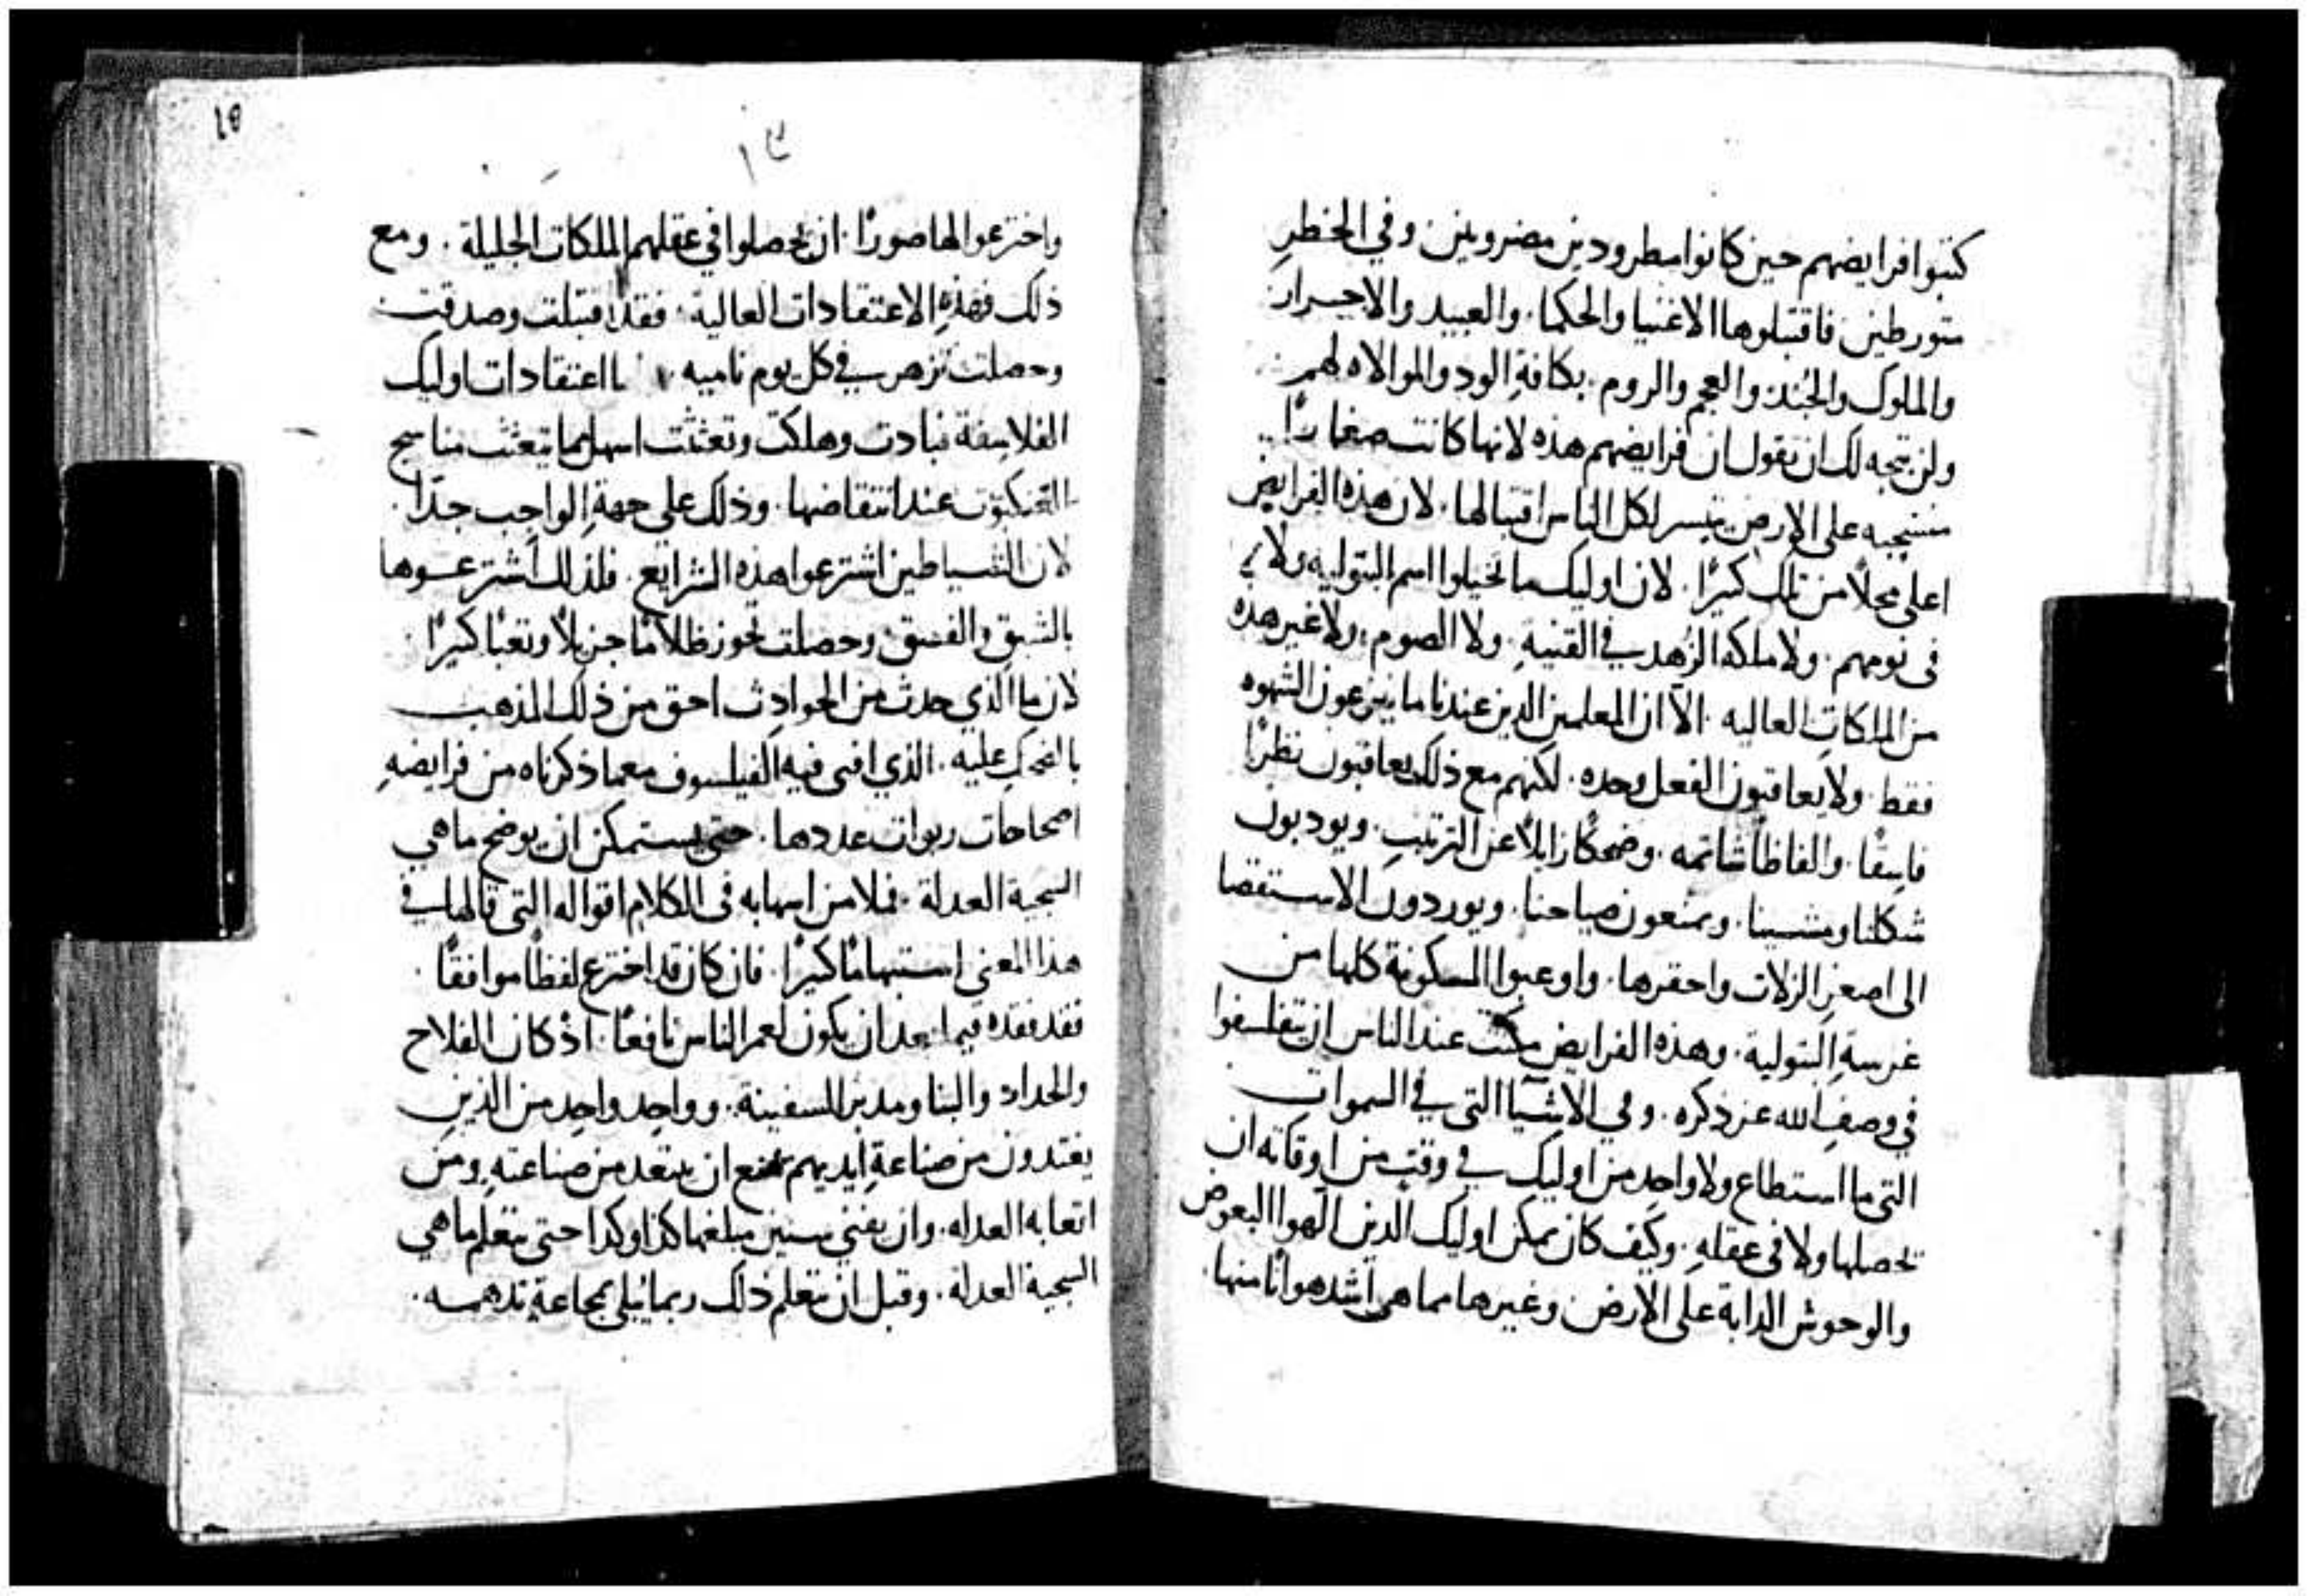 كتبوا فرايضهم حين كانوا مطرودين مضروبين وفي الخطر
متورطين فاقتبلوها الاغنيا والحكما. والعبيد والاحرار
والملوك والجند والعجم والروم. بكافة الود والموالاه لهم
ولن يتجه لك ان تقول ان فرايضهم هذه لانها كانت صغارًا
على الارض تيسر لكل الناس اقتبالها. لان هذه الفرايض
اعلى محلاً من تلك كثيرًا. لان اوليك ما تخيلوا اسم البتوليه ولا
في نومهم. ولا ملكة الزهد في القنية. ولا الصوم. ولا غير هذه
من الملكات العاليه. الا ان المعلمين الدين عندنا ما ينزعون الشهوه
فقط. ولا يعاقبون الفعل وحده. لكنهم مع ذلك يعاقبون نظرًا
فاسقًا. والفاظًا شاتمه. وضحكًا زايلاً عن الترتيب. ويودبون
شكلنا ومشينا. ويمنعون صياحنا. ويوردون الاستقصا
الى اصغر الزلات واحقرها. واوعبوا المسكونة كلها من
غرسة البتولية. وهذه الفرايض مكنت عند الناس ان يتفلسفوا
في وصف الله عز ذكره. وفي الاشيآ التي في السموات
التي ما استطاع ولا واحد من اوليك في وقت من اوقاته ان
تحصلها ولا في عقله. وكيف كان يمكن اوليك الدين الهوا البعوض
والوحوش الدابة على الارض وغيرها مما هي اشد هوانًا منها.
18
١٣
واخترعوا لها صورًا. ان يحصلوا في عقلهم الملكات الجليلة. ومع
ذلك فهذه الاعتقادات العالية. فقد اقتبلت وصدقت
وحصلت تزهر في كل يوم ناميه اعتقادات اوليك
الفلاسفة فبادت وهلكت وتعثثت اسهل مما يتعثث مناسج
العنكبوت عند انتقاضها. وذلك على جهة الواجب جدًا.
لان الشياطين اشترعوا هذه الشرايع. فلذلك اشترعوها
بالشبق والفسق. وحصلت تحوز ظلامًا جزيلاً وتعبًا كثيرًا
لان ما الذي حدث من الحوادث احق من ذلك المذهب
بالضحك عليه. الذي افنى فيه الفيلسوف معما ذكرناه من فرايضه
اصحاحات ربوات عددها. حتى يستمكن ان يوضح ما هي
السجية العدلة. فملا من اسهابه في الكلام اقواله التي قالها في
هذا المعنى استبهامًا كثيرًا. فان كان قد اخترع لفظًا موافقًا.
فقد فقده فيما بعد ان يكون لعمر الناس نافعًا. اذ كان الفلاح
والحداد والبنا ومدبر السفينة. وواحد واحد من الذين
يغتدون من صناعة ايديهم يمتنع ان يبتعد من صناعته ومن
اتعابه العدله. وان يفني سنين مبلغها كذا وكذا حتى يتعلم ما هي
السجية العدلة. وقبل ان يتعلم ذلك ربما بُلي بمجاعة تدهمه.